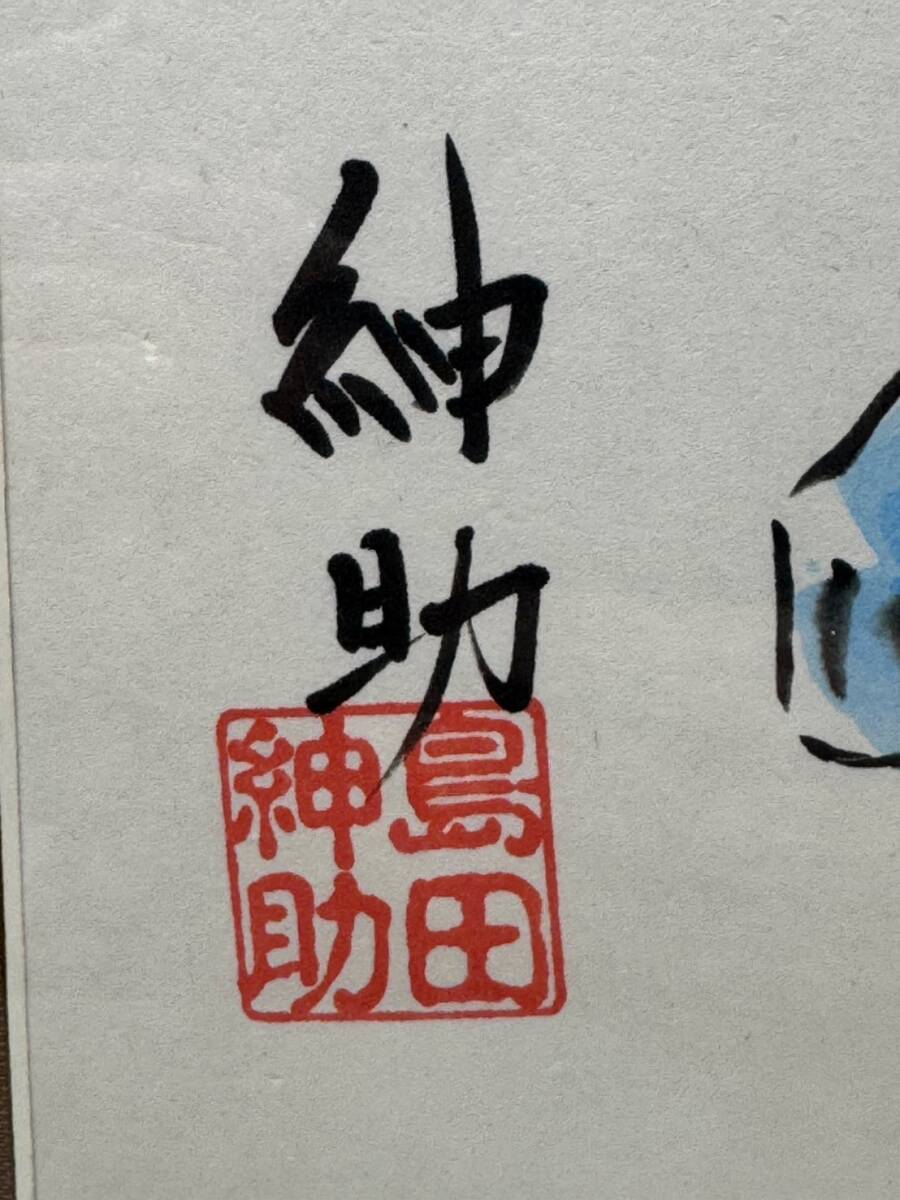 紳助
島田
紳助